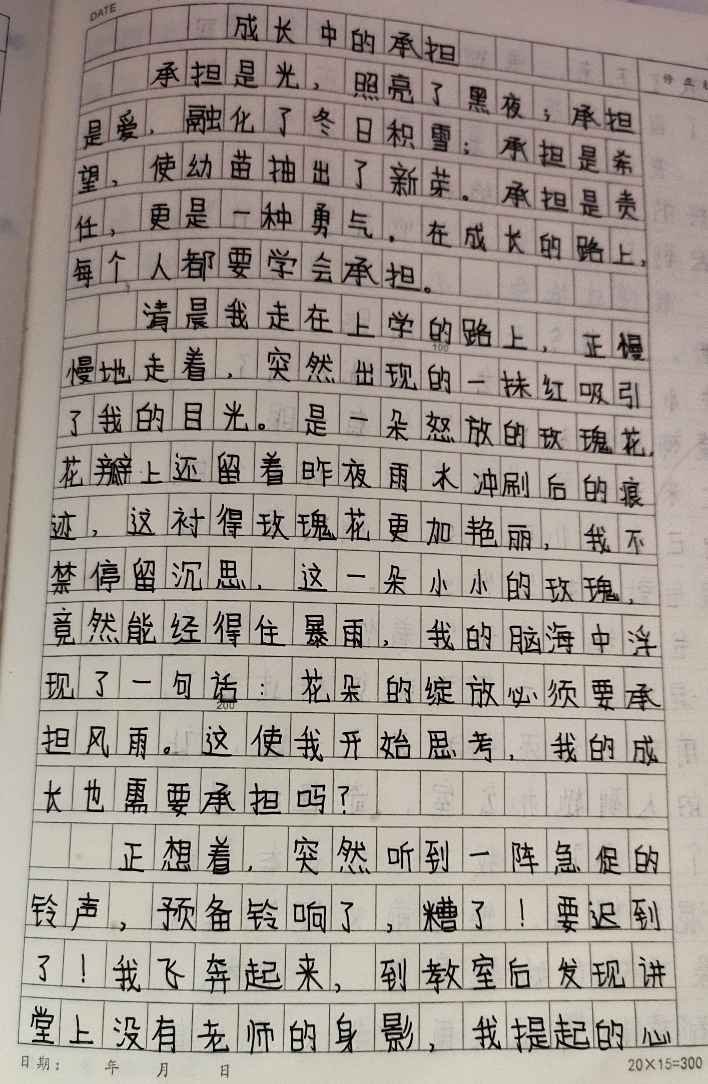 DATE
成长中的承担
承担是光，照亮了黑夜；承担
是爱，融化了冬日积雪；承担是希
望，使幼苗抽出了新芽。承担是责
任，更是一种勇气。在成长的路上，
每个人都要学会承担。
清晨我走在上学的路上，正慢
100
慢地走着，突然出现的一抹红吸引
了我的目光。是一朵怒放的玫瑰花，
花瓣上还留着昨夜雨水冲刷后的痕
迹，这衬得玫瑰花更加艳丽，我不
禁停留沉思，这一朵小小的玫瑰，
竟然能经得住暴雨，我的脑海中浮
现了一句话：花朵的绽放必须要承
200
担风雨。这使我开始思考，我的成
长也需要承担吗？
正想着，突然听到一阵急促的
铃声，预备铃响了，糟了！要迟到
了！我飞奔起来，到教室后发现讲
堂上没有老师的身影，我提起的心
日期： 年 月 日
20×15=300